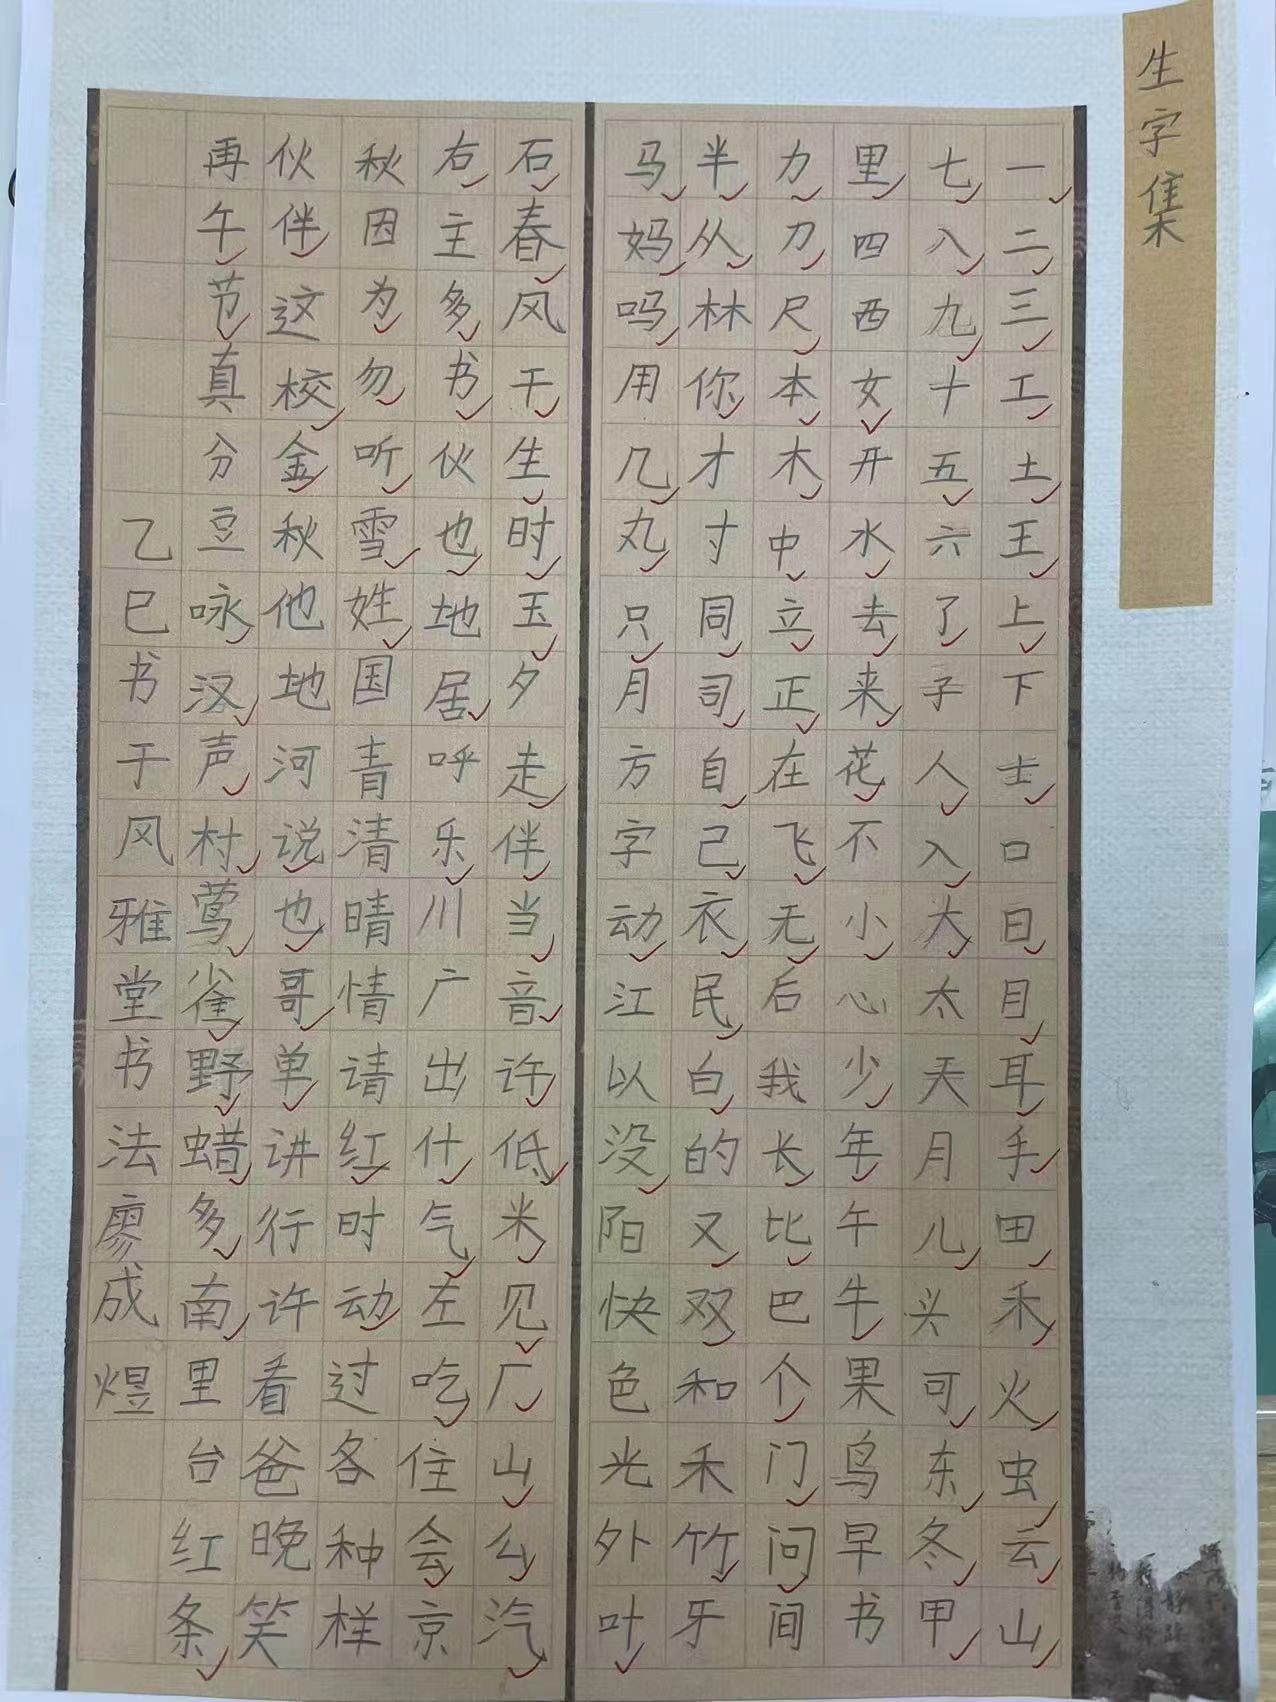 生字集
一二三工土王上下士口日目耳手田禾火虫云山
七八九十五六了子人入大太天月儿头可东冬甲
里四西女开水去来花不小心少年午牛果鸟早书
力刀尺本木中立正在飞无后我长比巴个门问间
半从林你才寸同司自己衣民白的又双和禾竹牙
马妈吗用几丸只月方字动江以没阳快色光外叶
石春风干生时玉夕走伴当音许低米见厂山么汽
右主多书伙也地居呼乐川广出什气左吃住会京
秋因为勿听雪姓国青清晴情请红时动过各种样
伙伴这校金秋他地河说也哥单讲行许看爸晚笑
再午节真分豆咏汉声村莺雀野蜡多南里台红条
乙巳书于风雅堂书法廖成煜